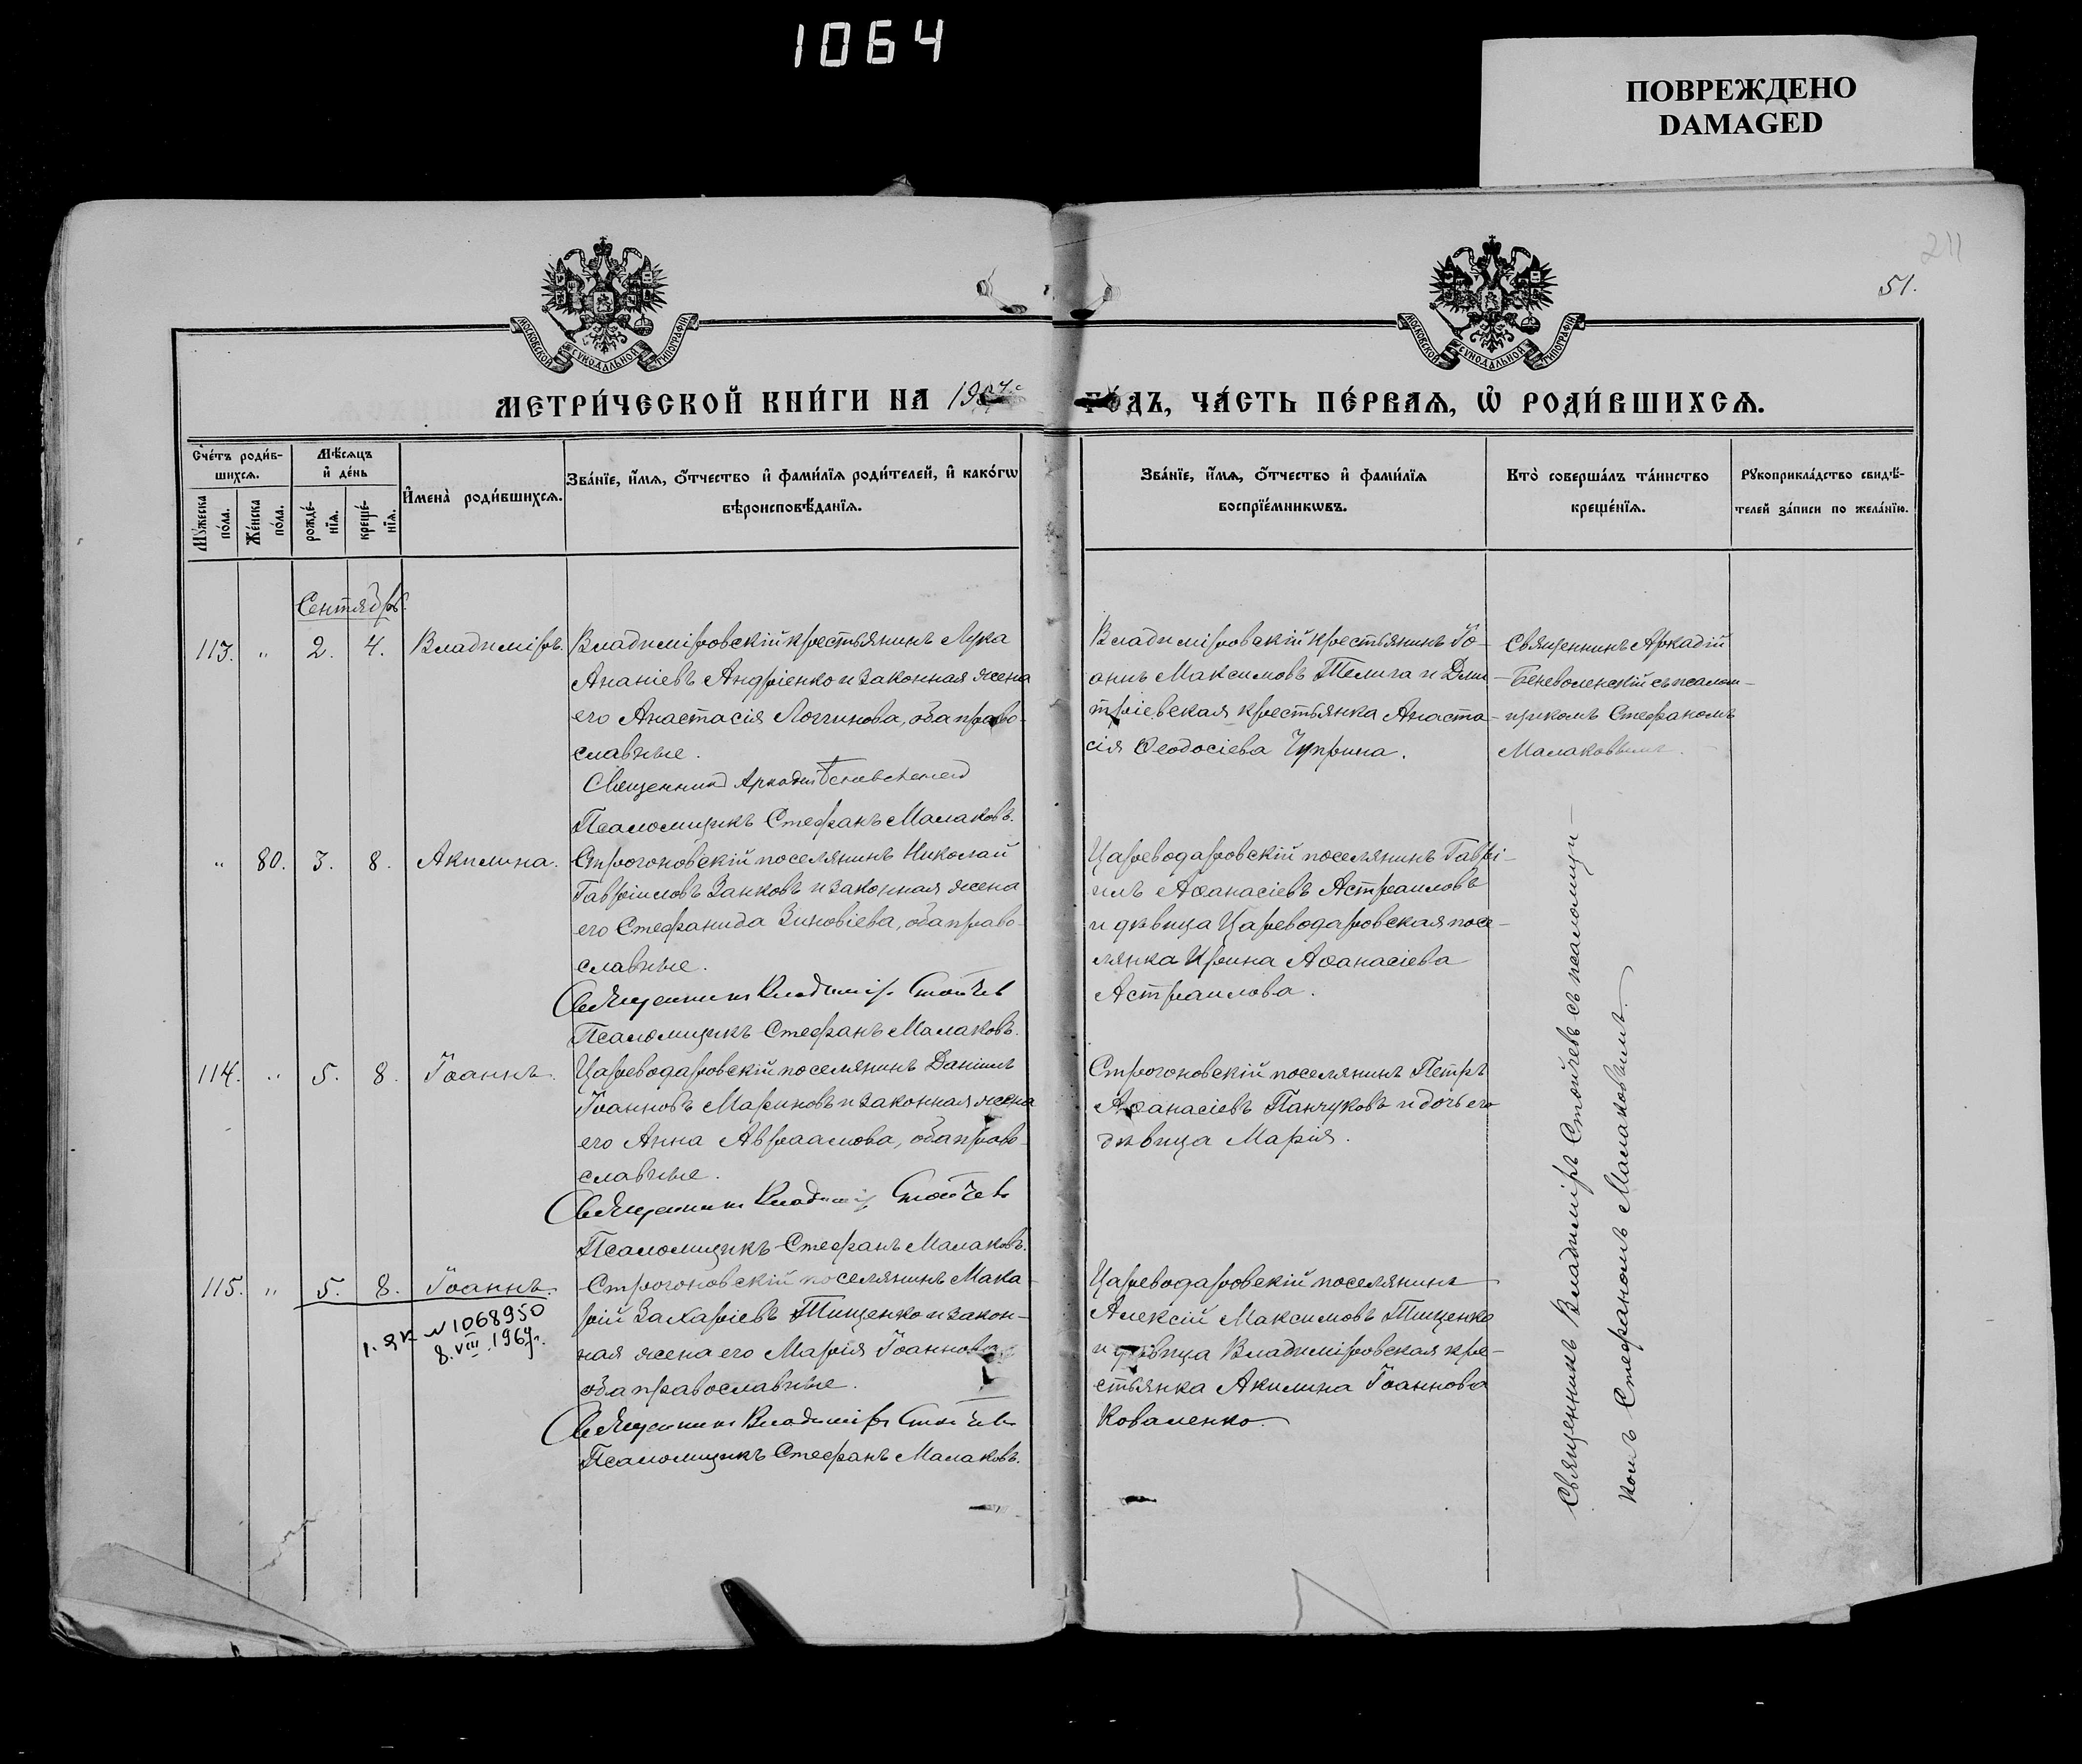 1064
ПОВРЕЖДЕНО
DAMAGED
211
51.
МОСКОВСКОЙ СѴНОДАЛЬНОЙ ТИПОГРАФІИ
МОСКОВСКОЙ СѴНОДАЛЬНОЙ ТИПОГРАФІИ
МЕТРИ́ЧЕСКОЙ КНИ́ГИ НА 1907 ГО́ДЪ, ЧА́СТЬ ПЕ́РВАѦ, Ѡ҆ РОДИ́ВШИХСѦ.
Сче́тъ роди́в-
шихсѧ.
Мꙋ́жеска по́ла.
Же́нска по́ла.
Мѣ́сѧцъ
и҆ де́нь
рожде́-
нїѧ.
креще́-
нїѧ.
И҆мена̀ роди́вшихсѧ.
Зва́нїе, и҆́мѧ, ѻ҆́тчество и҆ фами́лїѧ роди́телей, и҆ како́гѡ
вѣроисповѣ́данїѧ.
Зва́нїе, и҆́мѧ, ѻ҆́тчество и҆ фами́лїѧ
воспрїе́мникѡвъ.
Кто̀ соверша́лъ та́инство
креще́нїѧ.
Рꙋкоприкла́дство свидѣ́-
телей за́писи по жела́нїю.
Сентябрь.
113. " 2. 4. Владиміръ.
Владиміровскій крестьянинъ Лука
Ананіевъ Андріенко и законная жена
его Анастасія Логгинова, оба право-
славные.
Священник Аркадий Беневоленский
Псаломщикъ Стефанъ Малаковъ.
Владиміровскій крестьянинъ Іо-
аннъ Максимовъ Телига и Дми-
тріевская крестьянка Анаста-
сія Ѳеодосіева Чуприна.
Священникъ Аркадій
Беневоленскій съ псалом-
щикомъ Стефаномъ
Малаковымъ.
" 80. 3. 8. Акилина.
Строгоновскій поселянинъ Николай
Гавріиловъ Занковъ и законная жена
его Стефанида Зиновіева, оба право-
славные.
Священникъ Владиміръ Стойчев
Псаломщикъ Стефанъ Малаковъ.
Цареводаровскій поселянинъ Гаврі-
илъ Аѳанасіевъ Астраиловъ
и дѣвица Цареводаровская посе-
лянка Ирина Аѳанасіева
Астраилова.
114. " 5. 8. Іоаннъ.
Цареводаровскій поселянинъ Даніилъ
Іоанновъ Мариновъ и законная жена
его Анна Авраамова, оба право-
славные.
Священникъ Владиміръ Стойчевъ
Псаломщикъ Стефанъ Малаковъ.
Строгоновскій поселянинъ Петръ
Аѳанасіевъ Панчуковъ и дочь его
дѣвица Марія.
115. " 5. 8. Іоаннъ.
1. ЯК № 1068950
8. VIII. 1967г.
Строгоновскій поселянинъ Мака-
рій Захаріевъ Тищенко и закон-
ная жена его Марія Іоаннова
оба православные.
Священникъ Владиміръ Стойчевъ
Псаломщикъ Стефанъ Малаковъ.
Цареводаровскій поселянинъ
Алексій Максимовъ Тищенко
и дѣвица Владиміровская кре-
стьянка Акилина Іоаннова
Коваленко.
Священникъ Владиміръ Стойчевъ съ псаломщи-
комъ Стефаномъ Малаковымъ.